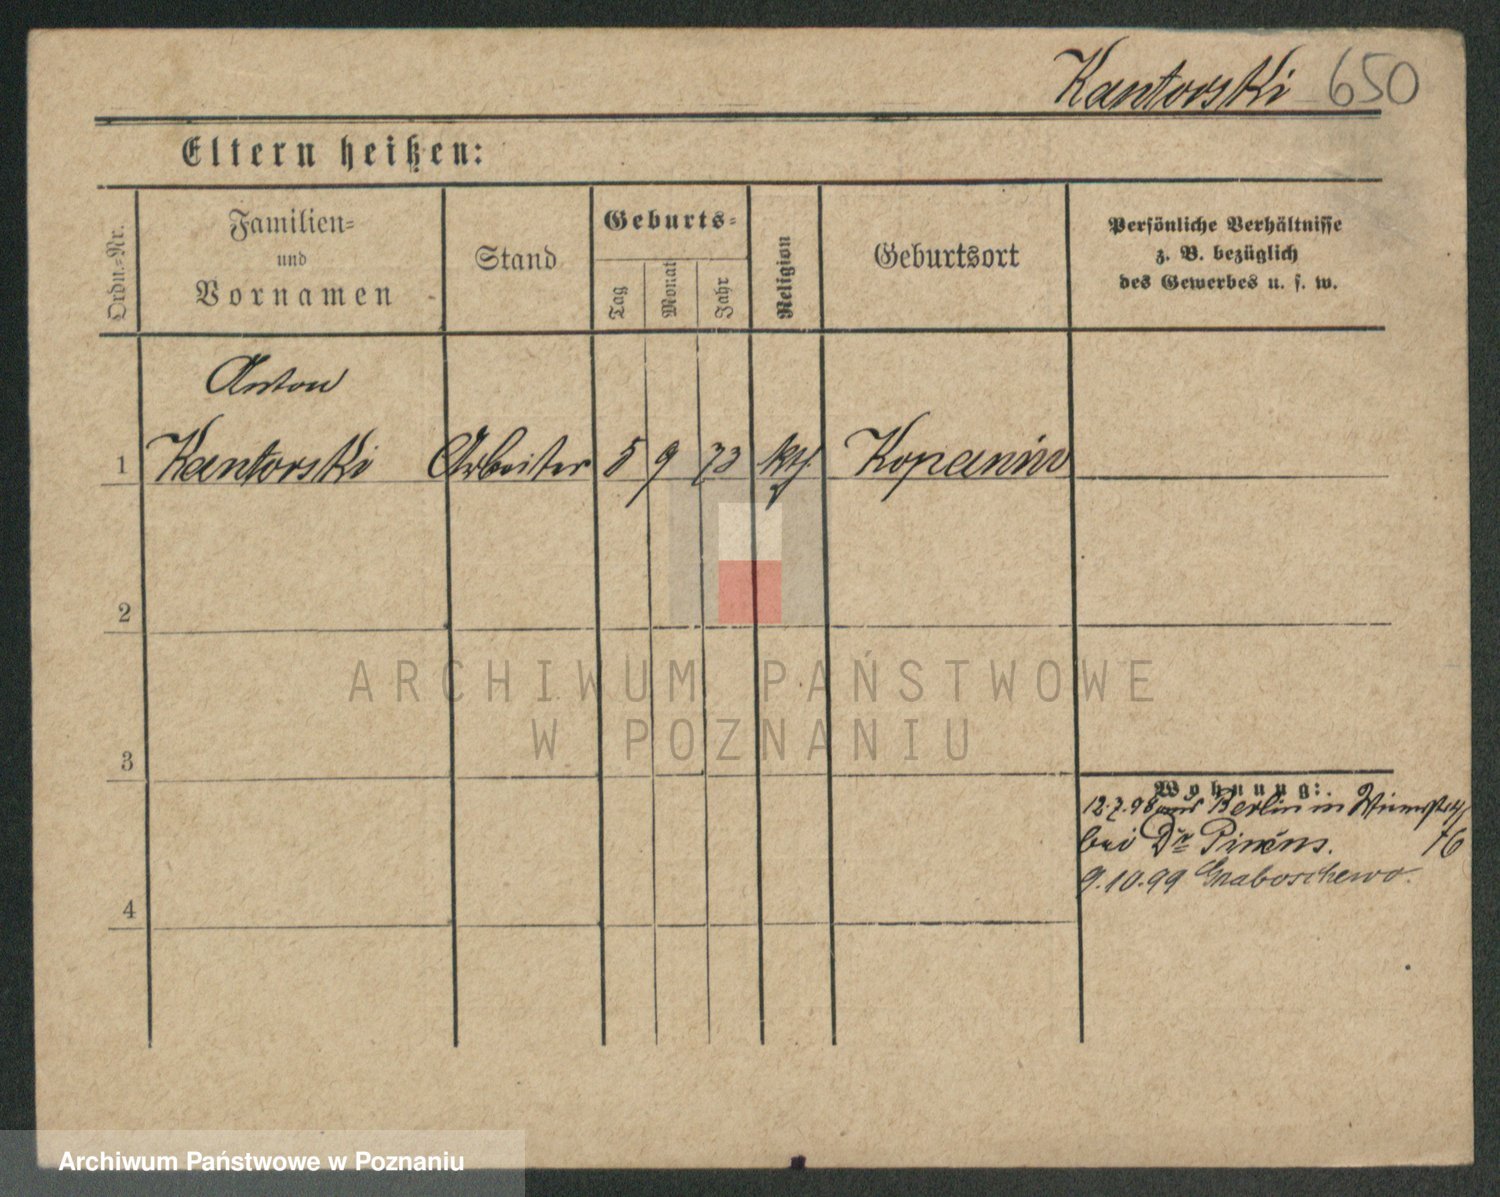 Kantorski 650
Eltern heißen:
Ordn.-Nr.
Familien-
und
Vornamen
Stand
Geburts-
Tag
Monat
Jahr
Religion
Geburtsort
Persönliche Verhältnisse
z. B. bezüglich
des Gewerbes u. s. w.
Anton
1 Kantorski Arbeiter 5 9 73 kth.
2
3
4
Wohnung:
12.7.98 aus Berlin in
bei Dr
9.10.99 Graboschewo.
ARCHIWUM PAŃSTWOWE
W POZNANIU
Archiwum Państwowe w Poznaniu